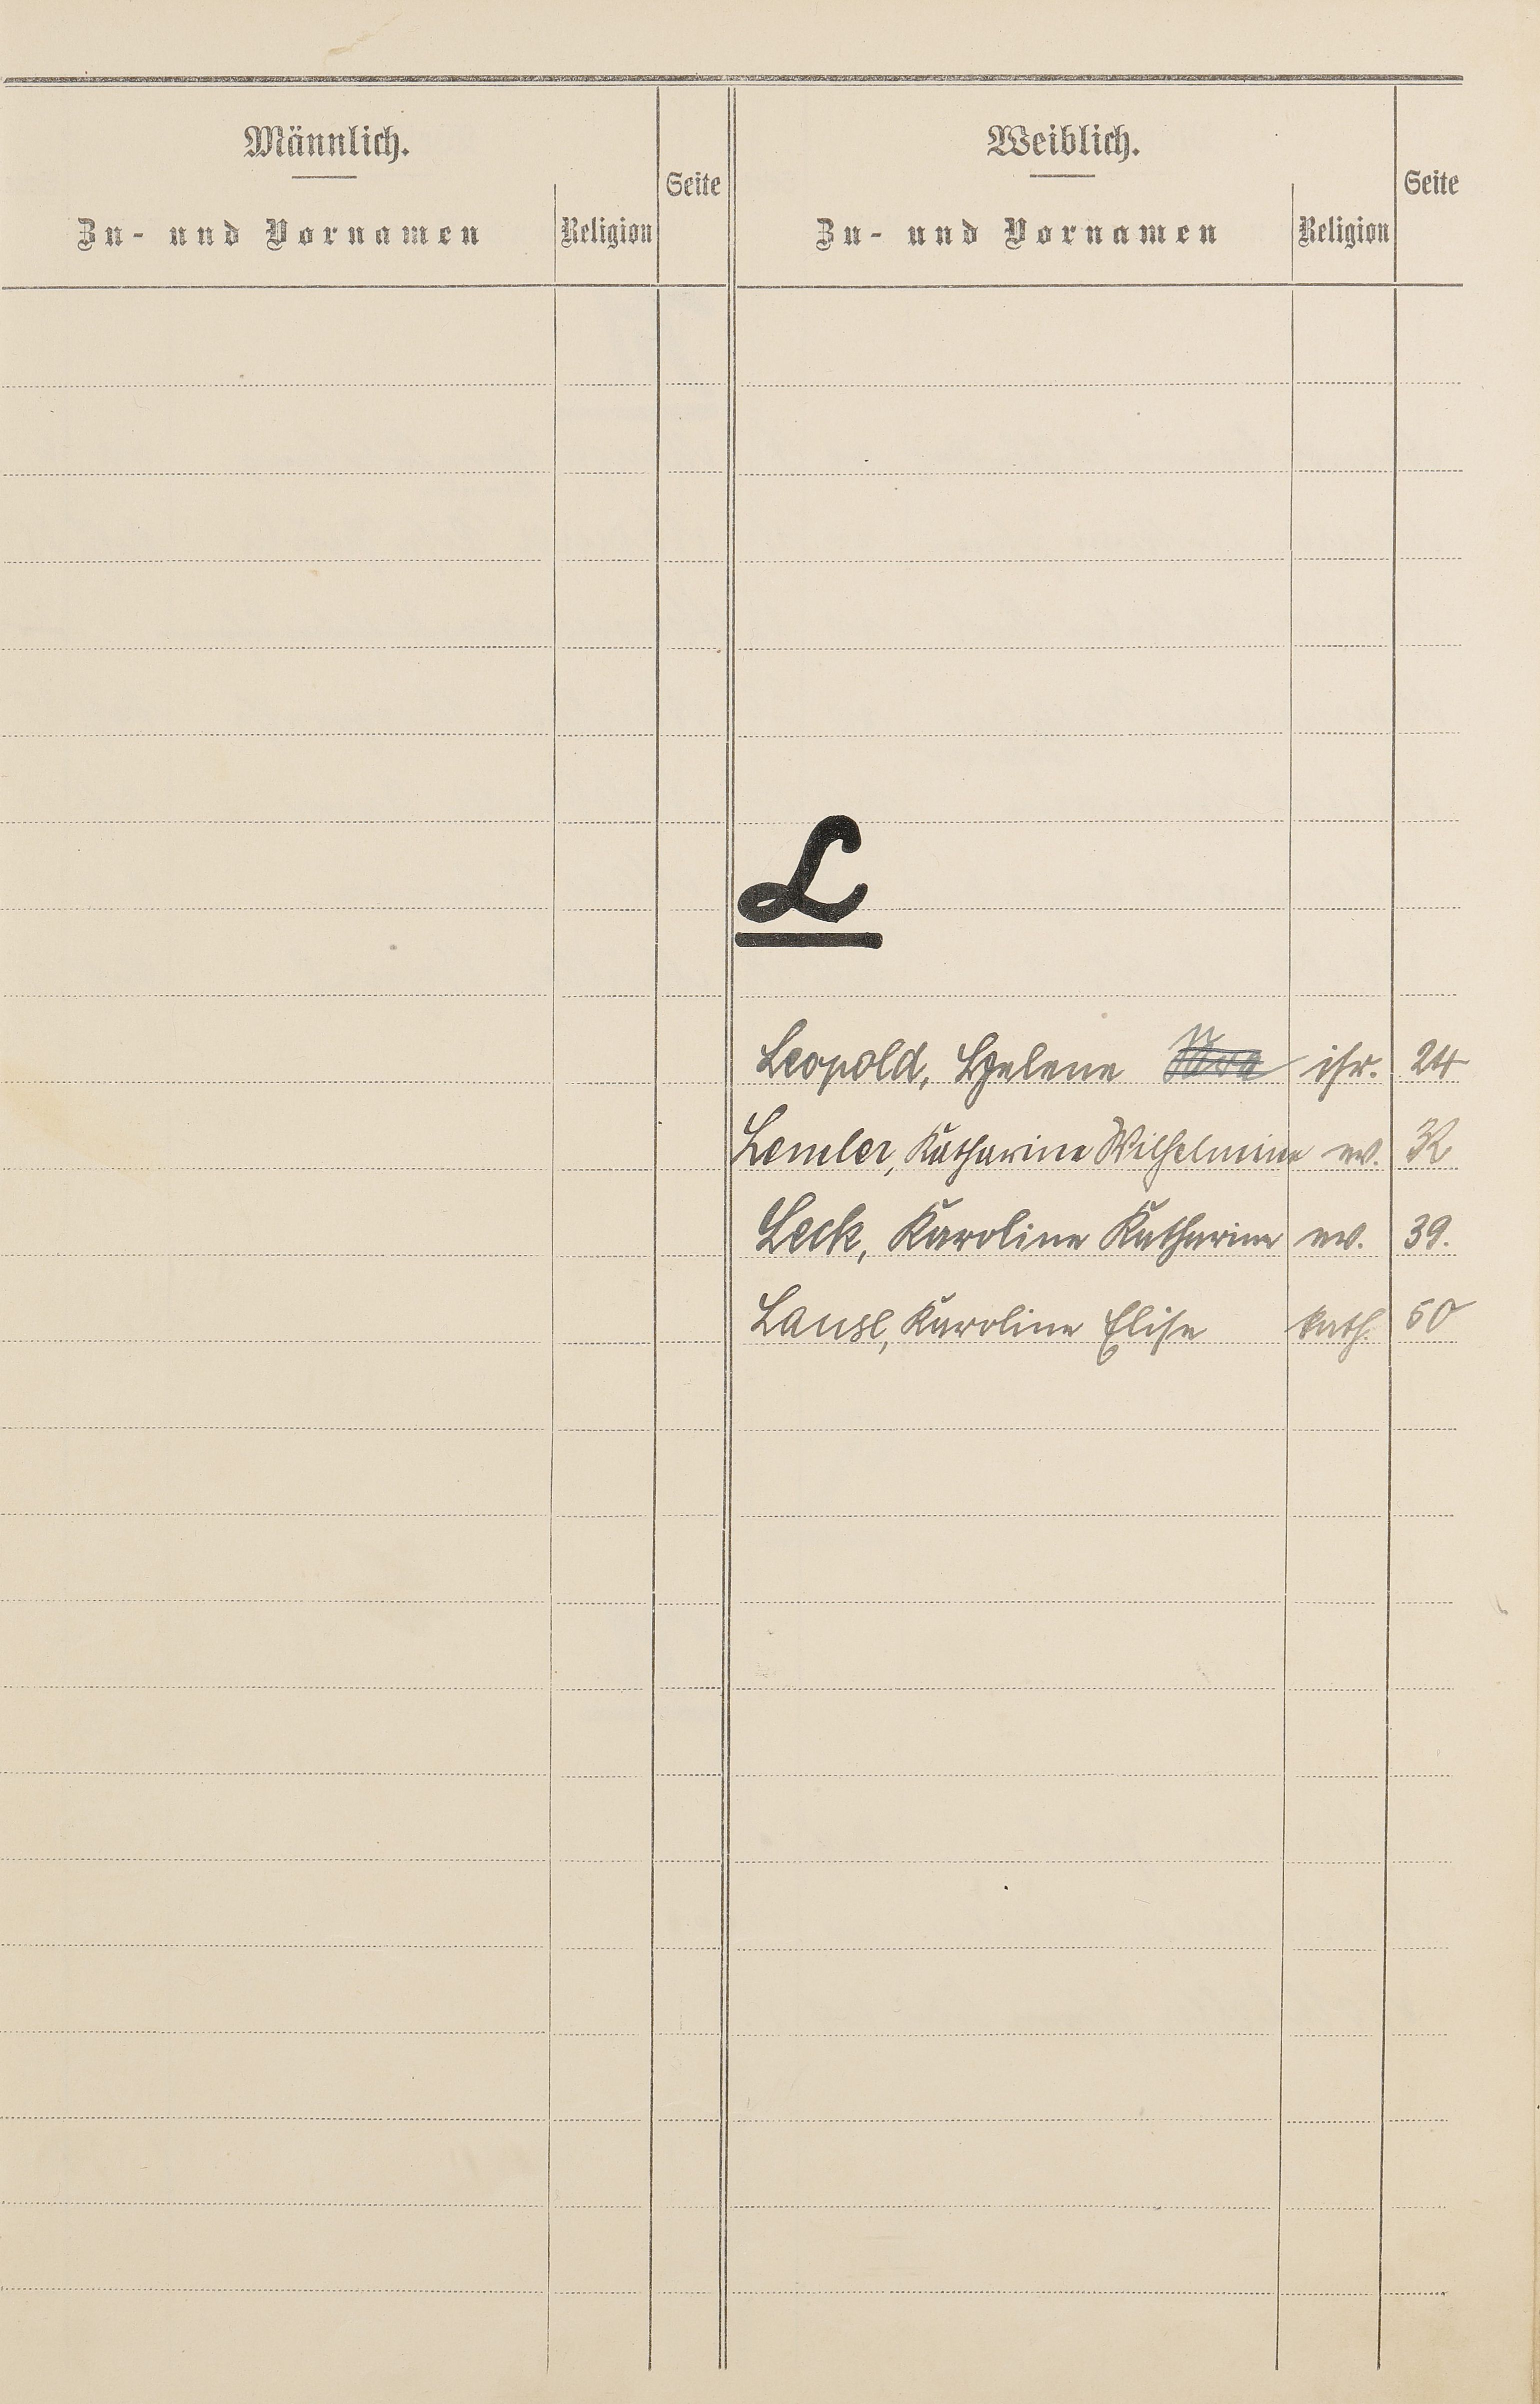 Männlich.
Zu- und Vornamen
Religion
Seite
Weiblich.
Zu- und Vornamen
Religion
Seite
L
Leopold, Helene isr. 24
Lemler, Katharine Wilhelmine ev. 32
Leck, Karoline Katharine ev. 39.
Lansl, Karoline Elise kath. 50